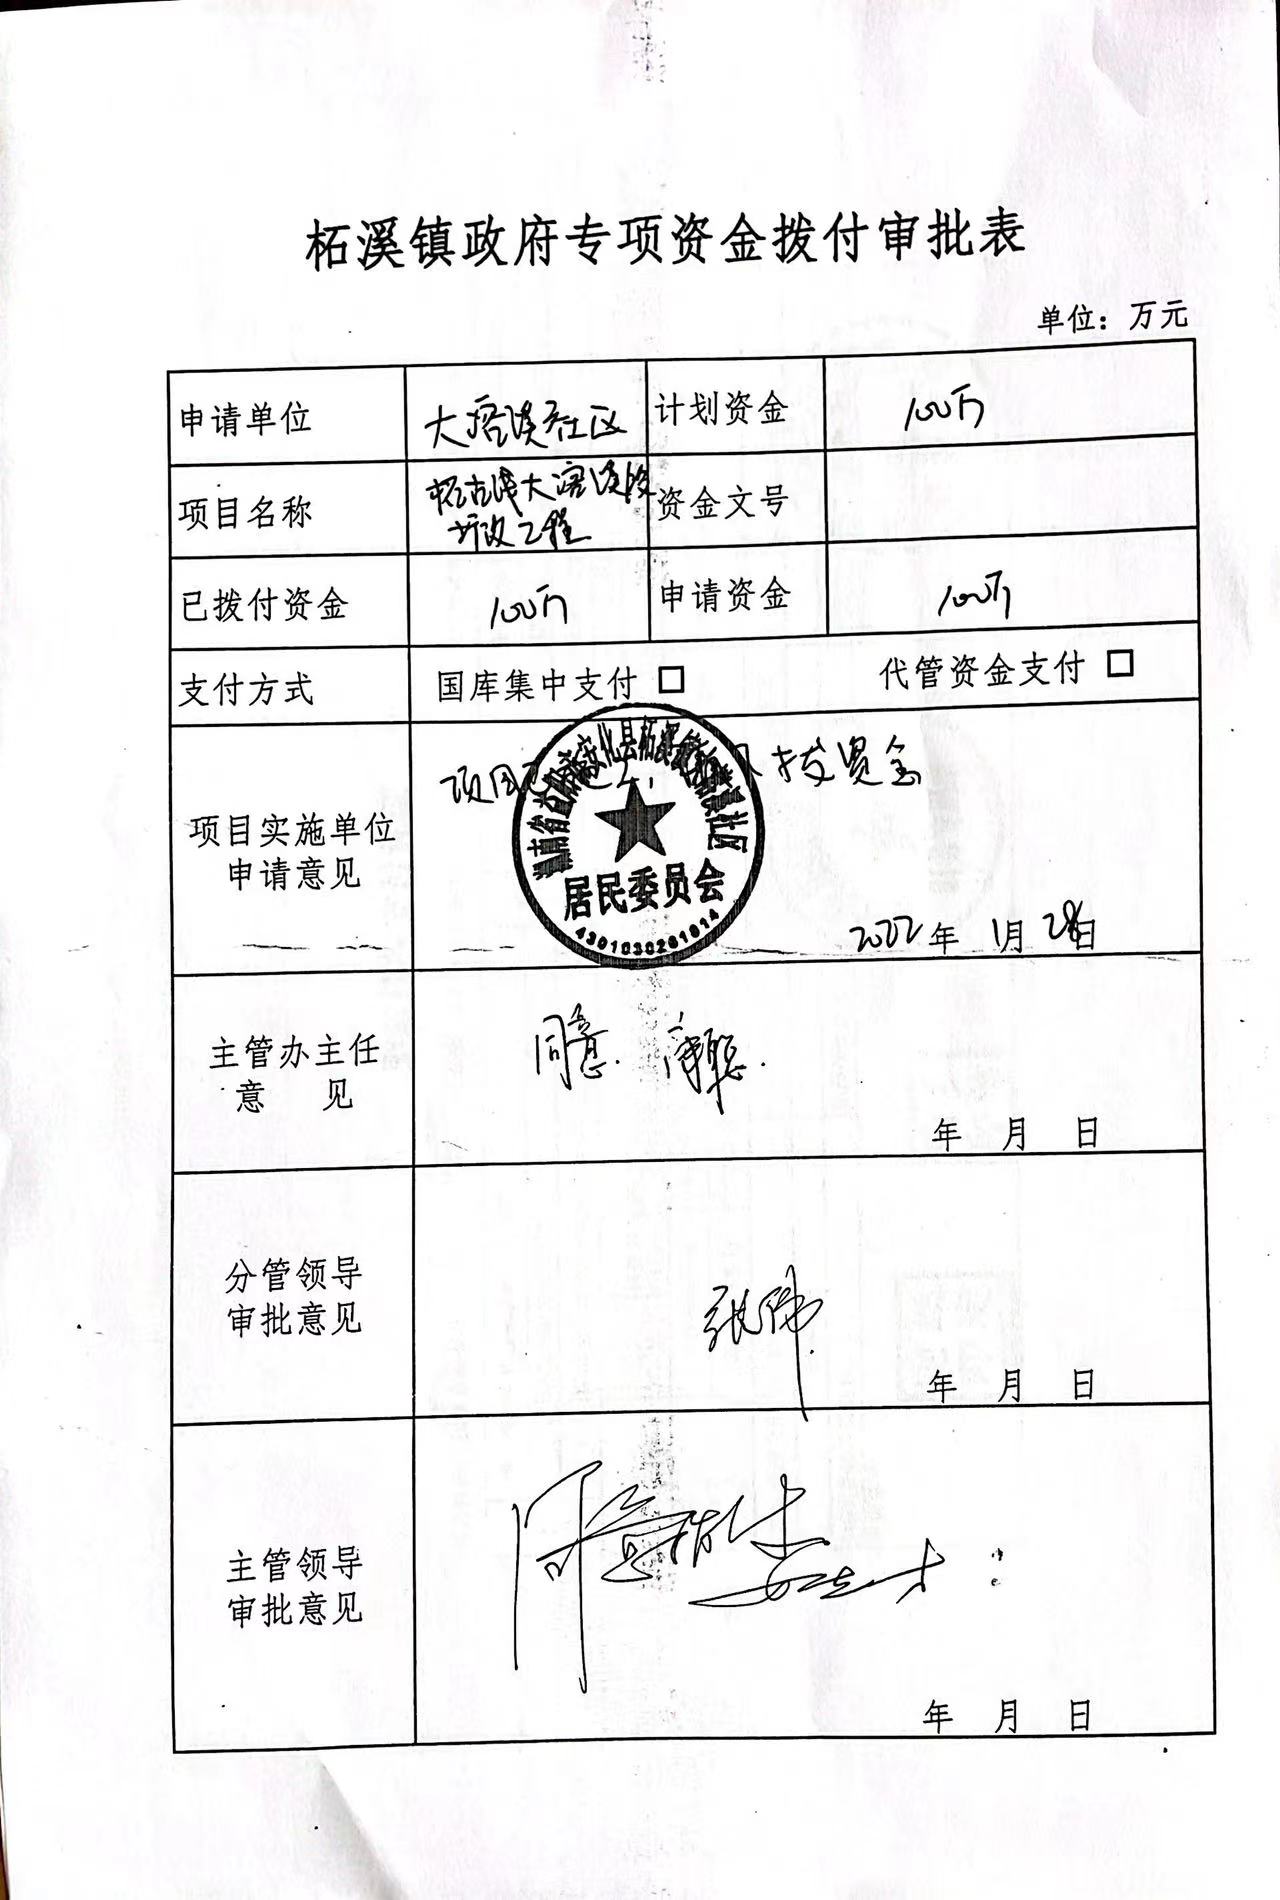 柘溪镇政府专项资金拨付审批表
单位：万元
申请单位 大溶溪社区 计划资金 100万
项目名称 柘古线大溶溪段 资金文号
工程
已拨付资金 100万 申请资金 100万
支付方式 国库集中支付 □ 代管资金支付 □
项目 拨资金
湖南省益阳市安化县柘溪镇大溶溪社区
居民委员会
4301030261614
项目实施单位
申请意见
2022年1月28日
主管办主任
意 见
同意.
年 月 日
分管领导
审批意见
张伟
年 月 日
主管领导
审批意见
同意拨付
年 月 日